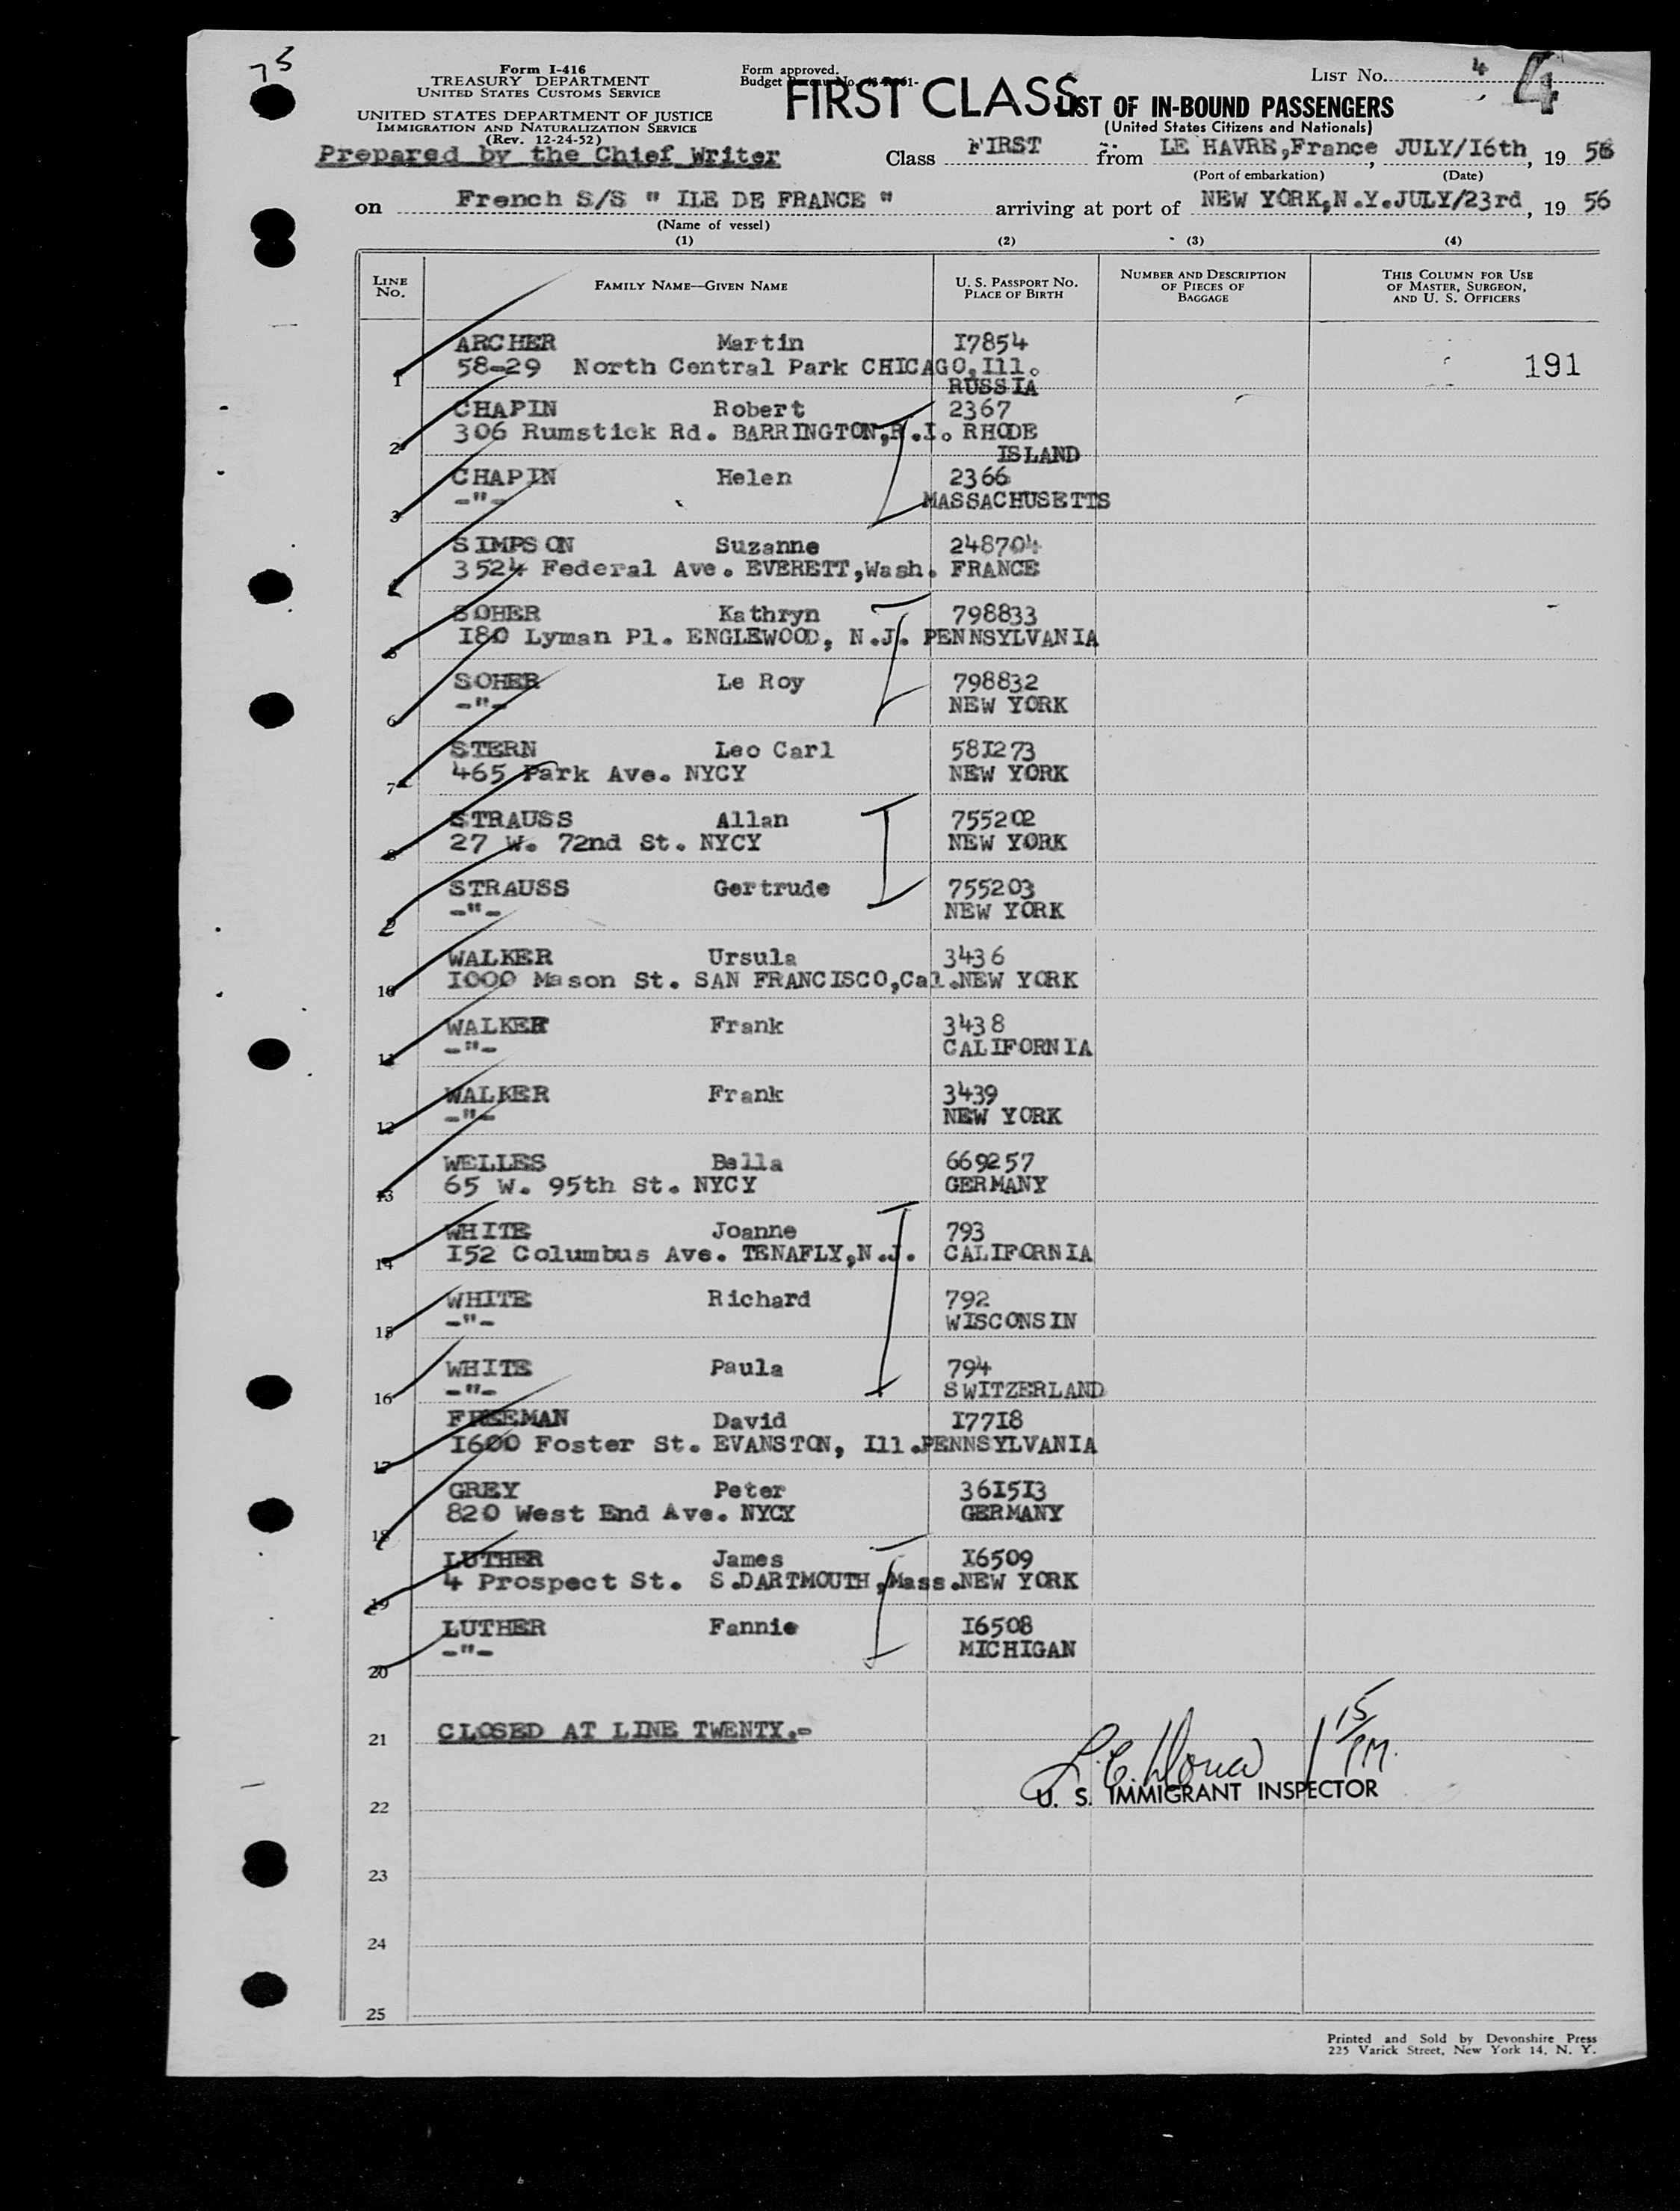 75
Form I-416
TREASURY DEPARTMENT
UNITED STATES CUSTOMS SERVICE
UNITED STATES DEPARTMENT OF JUSTICE
IMMIGRATION AND NATURALIZATION SERVICE
(Rev. 12-24-52)
Prepared by the Chief Writer
Form approved.
Budget
FIRST CLASS
LIST NO. 4
4
LIST OF IN-BOUND PASSENGERS
(United States Citizens and Nationals)
Class FIRST from LE HAVRE,France, JULY/I6th, 19 56
(Port of embarkation) (Date)
on French S/S " ILE DE FRANCE " arriving at port of NEW YORK,N.Y.JULY/23rd, 19 56
(Name of vessel)
(1) (2) (3) (4)
LINE NO. FAMILY NAME—GIVEN NAME U. S. PASSPORT NO. PLACE OF BIRTH NUMBER AND DESCRIPTION OF PIECES OF BAGGAGE THIS COLUMN FOR USE OF MASTER, SURGEON, AND U. S. OFFICERS
ARCHER Martin I7854
1 58-29 North Central Park CHICAGO,Ill. 191
RUSSIA
CHAPIN Robert 2367
2 306 Rumstick Rd. BARRINGTON,R.I. RHODE
ISLAND
CHAPIN Helen 2366
3 -"- MASSACHUSETTS
SIMPSON Suzanne 248704
4 3524 Federal Ave. EVERETT,Wash. FRANCE
SOHER Kathryn 798833
5 I80 Lyman Pl. ENGLEWOOD, N.J. PENNSYLVANIA
SOHER Le Roy 798832
6 -"- NEW YORK
STERN Leo Carl 58I273
7 465 Park Ave. NYCY NEW YORK
STRAUSS Allan 755202
8 27 W. 72nd St. NYCY NEW YORK
STRAUSS Gertrude 755203
9 -"- NEW YORK
WALKER Ursula 3436
10 I000 Mason St. SAN FRANCISCO,Cal.NEW YORK
WALKER Frank 3438
11 -"- CALIFORNIA
WALKER Frank 3439
12 -"- NEW YORK
WELLES Bella 669257
13 65 W. 95th St. NYCY GERMANY
WHITE Joanne 793
14 I52 Columbus Ave. TENAFLY,N.J. CALIFORNIA
WHITE Richard 792
15 -"- WISCONSIN
WHITE Paula 794
16 -"- SWITZERLAND
FREEMAN David I77I8
17 I600 Foster St. EVANSTON, Ill.PENNSYLVANIA
GREY Peter 36I5I3
18 820 West End Ave. NYCY GERMANY
LUTHER James I6509
19 4 Prospect St. S.DARTMOUTH,Mass.NEW YORK
LUTHER Fannie I6508
20 -"- MICHIGAN
21 CLOSED AT LINE TWENTY.-
1 15/PM.
U. S. IMMIGRANT INSPECTOR
22
23
24
25
Printed and Sold by Devonshire Press
225 Varick Street, New York 14, N. Y.